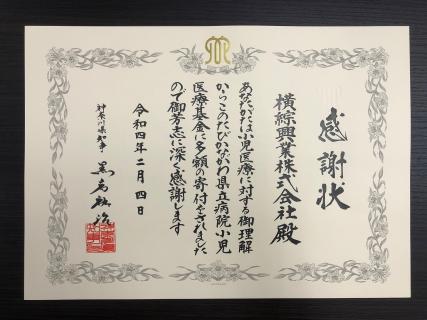 感謝状
横綜興業株式会社殿
あなたがたは小児医療に対する御理解
からこのたびかながわ県立病院小児
医療基金に多額の寄付をされました
ので御芳志に深く感謝します
令和四年二月四日
神奈川県知事 黒岩祐治